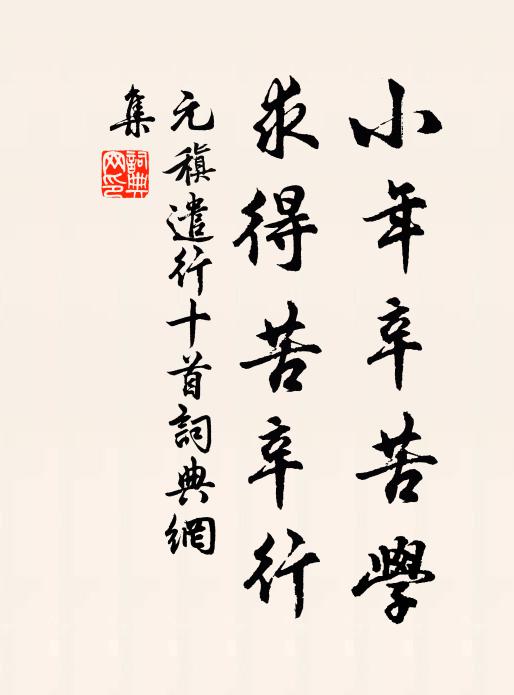 小年辛苦學
求得苦辛行
元稹遣行十首詞典網
集
詞典
网印